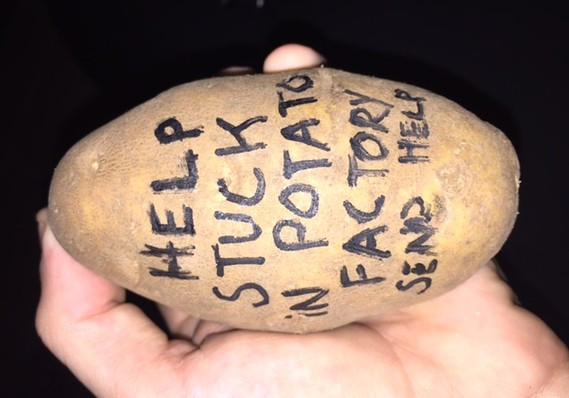 HELP
STUCK
IN POTATO
FACTORY
SEND HELP